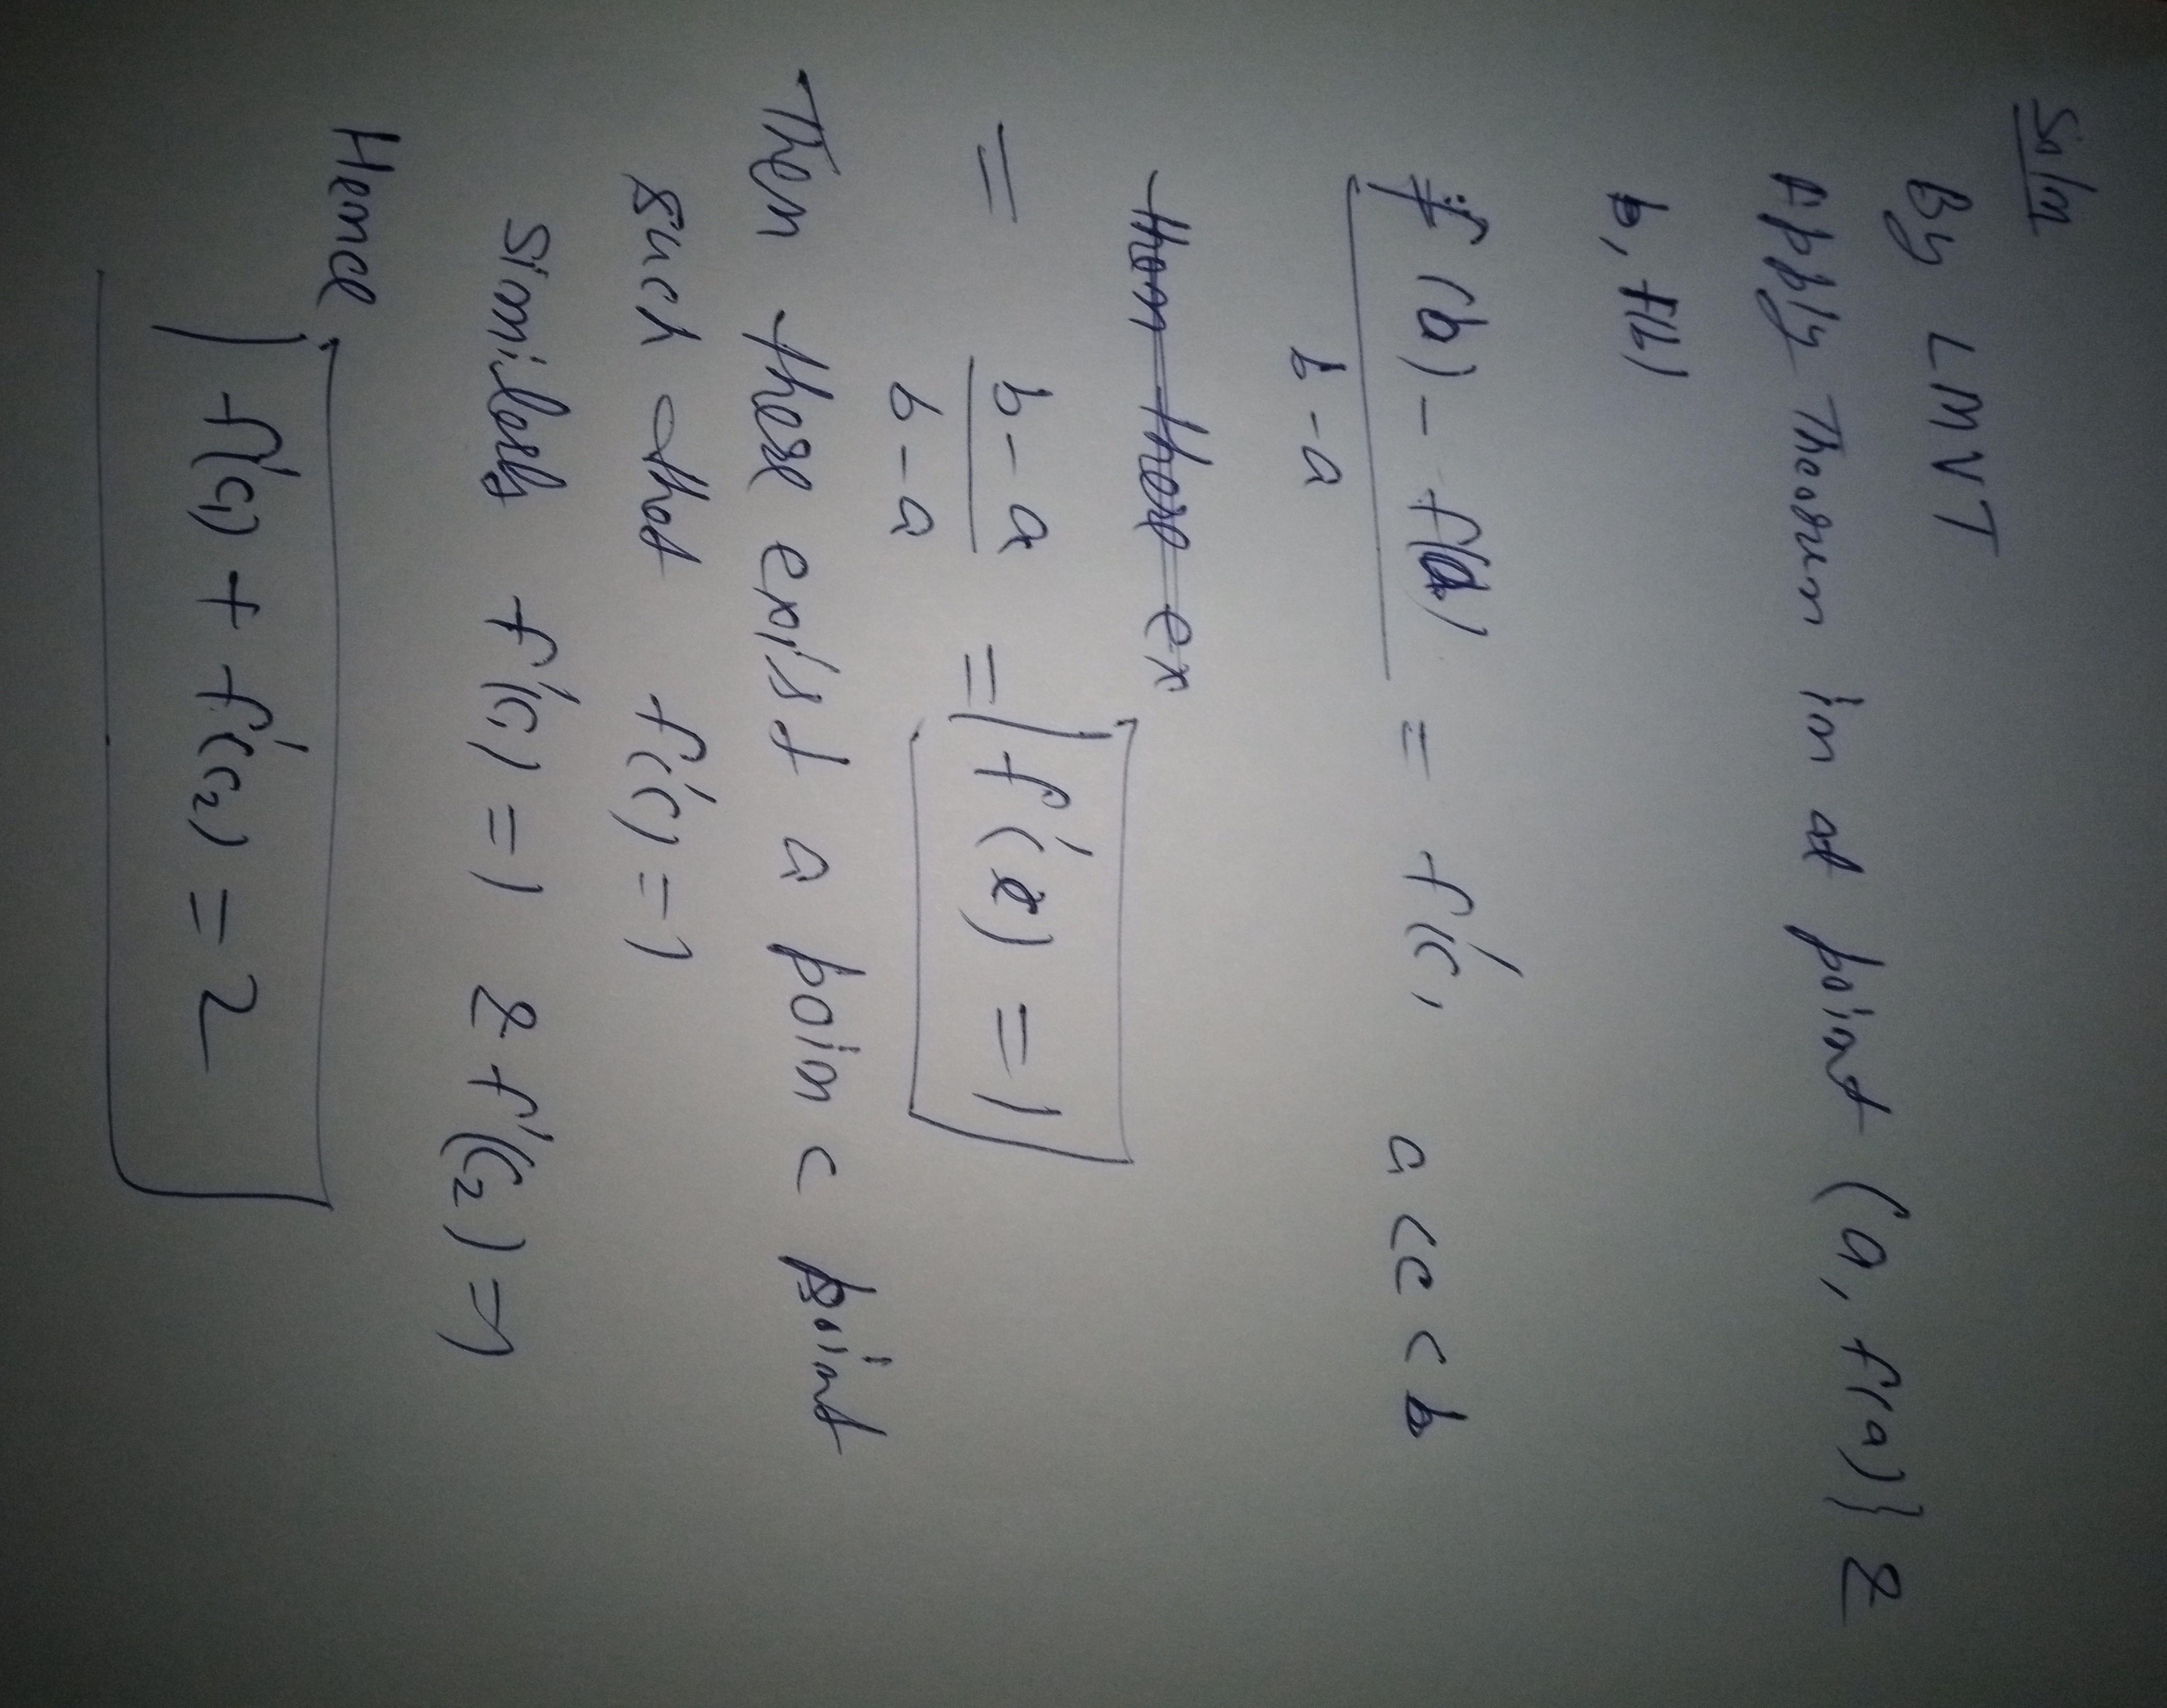 Soln
By LMVT
Apply Theorem in at point (a, f(a)} &
b, f(b)
f(b) - f(a) = f'(c, a < c < b
b - a
then there ex
= b - a = f'(c) = 1
b - a
Then there exist a poin c point
such that f'(c) = 1
Similarly f'(c1) = 1 & f'(c2) = 1
Hence
f'(c1) + f'(c2) = 2